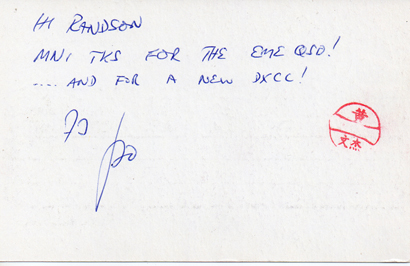 HI RANDSON
MNI TKS FOR THE EME QSO!
.... AND FOR A NEW DXCC!
73
文杰